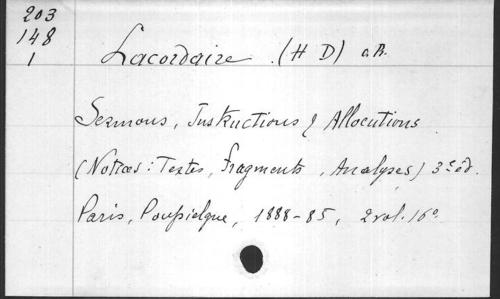 203
148
1
Lacordaire (H D) o.p.
Sermons, Instructions & Allocutions
(Notices: Textes, Fragments, Analyses) 3e éd.
Paris, Poussielgue, 1888-85, 2 vol. 16o